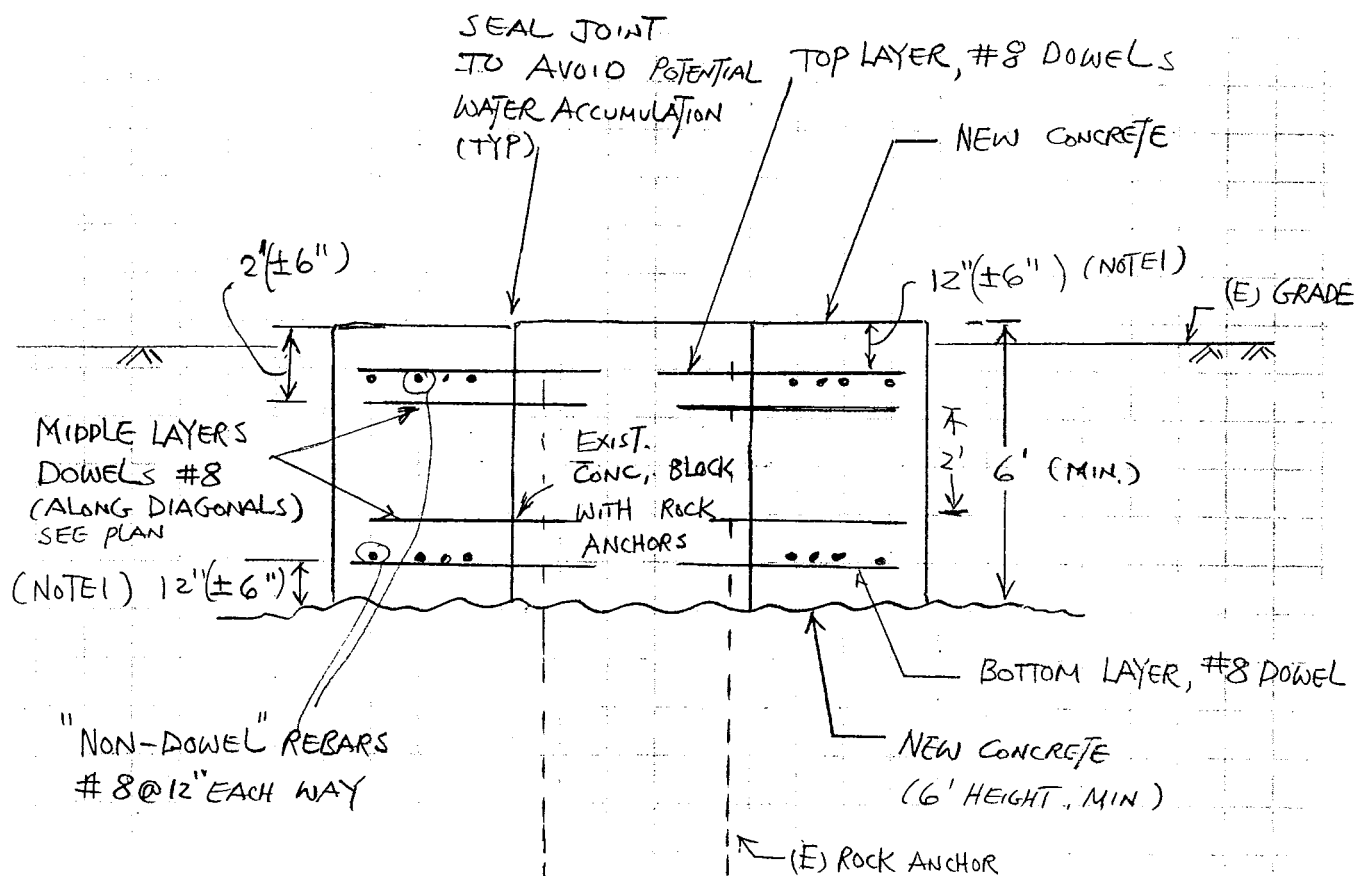 SEAL JOINT
TO AVOID POTENTIAL
WATER ACCUMULATION
(TYP)
TOP LAYER, #8 DOWELS
NEW CONCRETE
2'(±6")
12"(±6") (NOTE1)
(E) GRADE
MIDDLE LAYERS
DOWELS #8
(ALONG DIAGONALS)
SEE PLAN
EXIST.
CONC, BLOCK
WITH ROCK
ANCHORS
2'
6' (MIN.)
(NOTE1) 12"(±6")
BOTTOM LAYER, #8 DOWEL
"NON-DOWEL" REBARS
#8@12" EACH WAY
NEW CONCRETE
(6' HEIGHT, MIN)
(E) ROCK ANCHOR